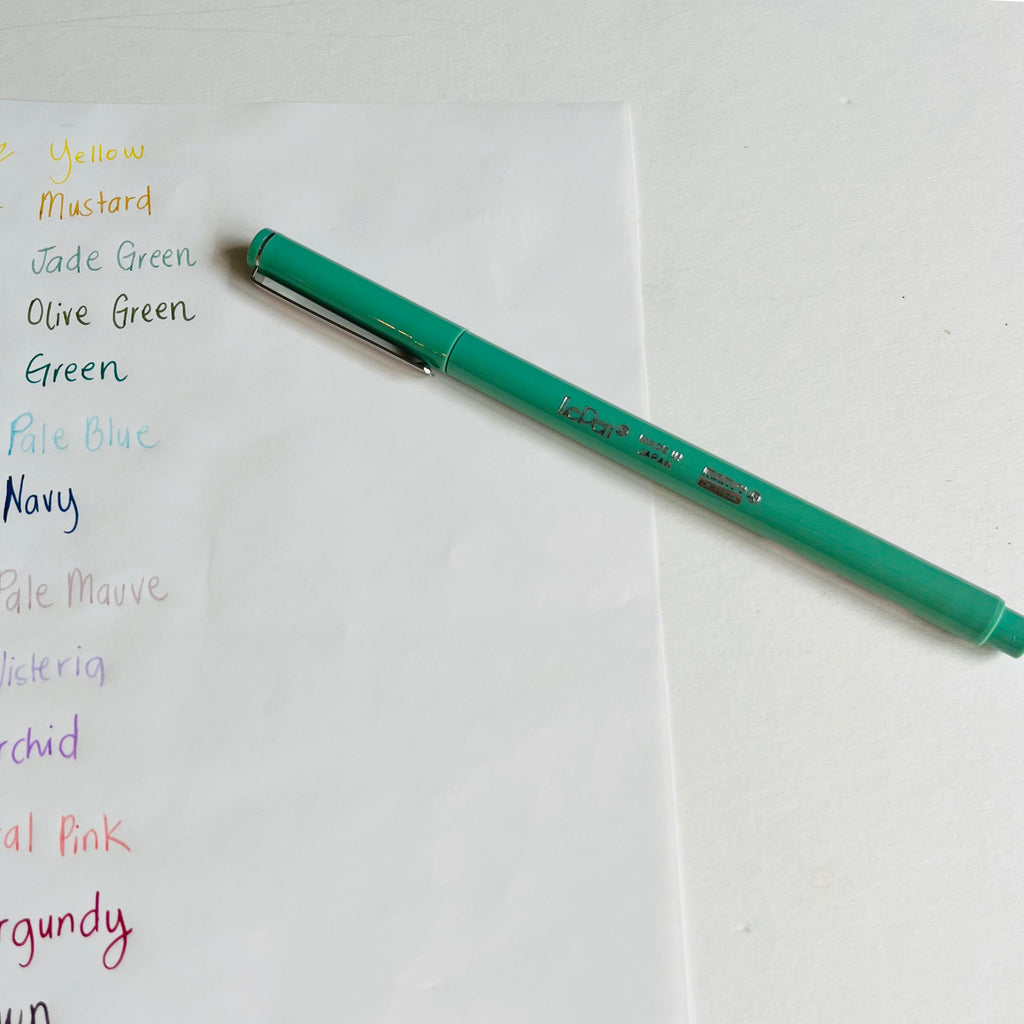 Yellow
Mustard
Jade Green
Olive Green
Green
Pale Blue
Navy
Pale Mauve
isteria
rchid
al Pink
rgundy
wn
LePen
MADE IN
JAPAN